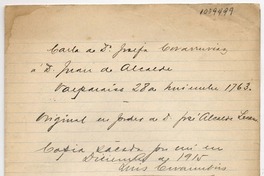 1079999
Carta de Dª Josefa Covarrubias
á D. Juan de Alcalde
Valparaíso 28 de Noviembre 1763.
Original en poder de D. José Alcalde
Copia sacada por mi en
Diciembre de 1910
Luis Covarrubias